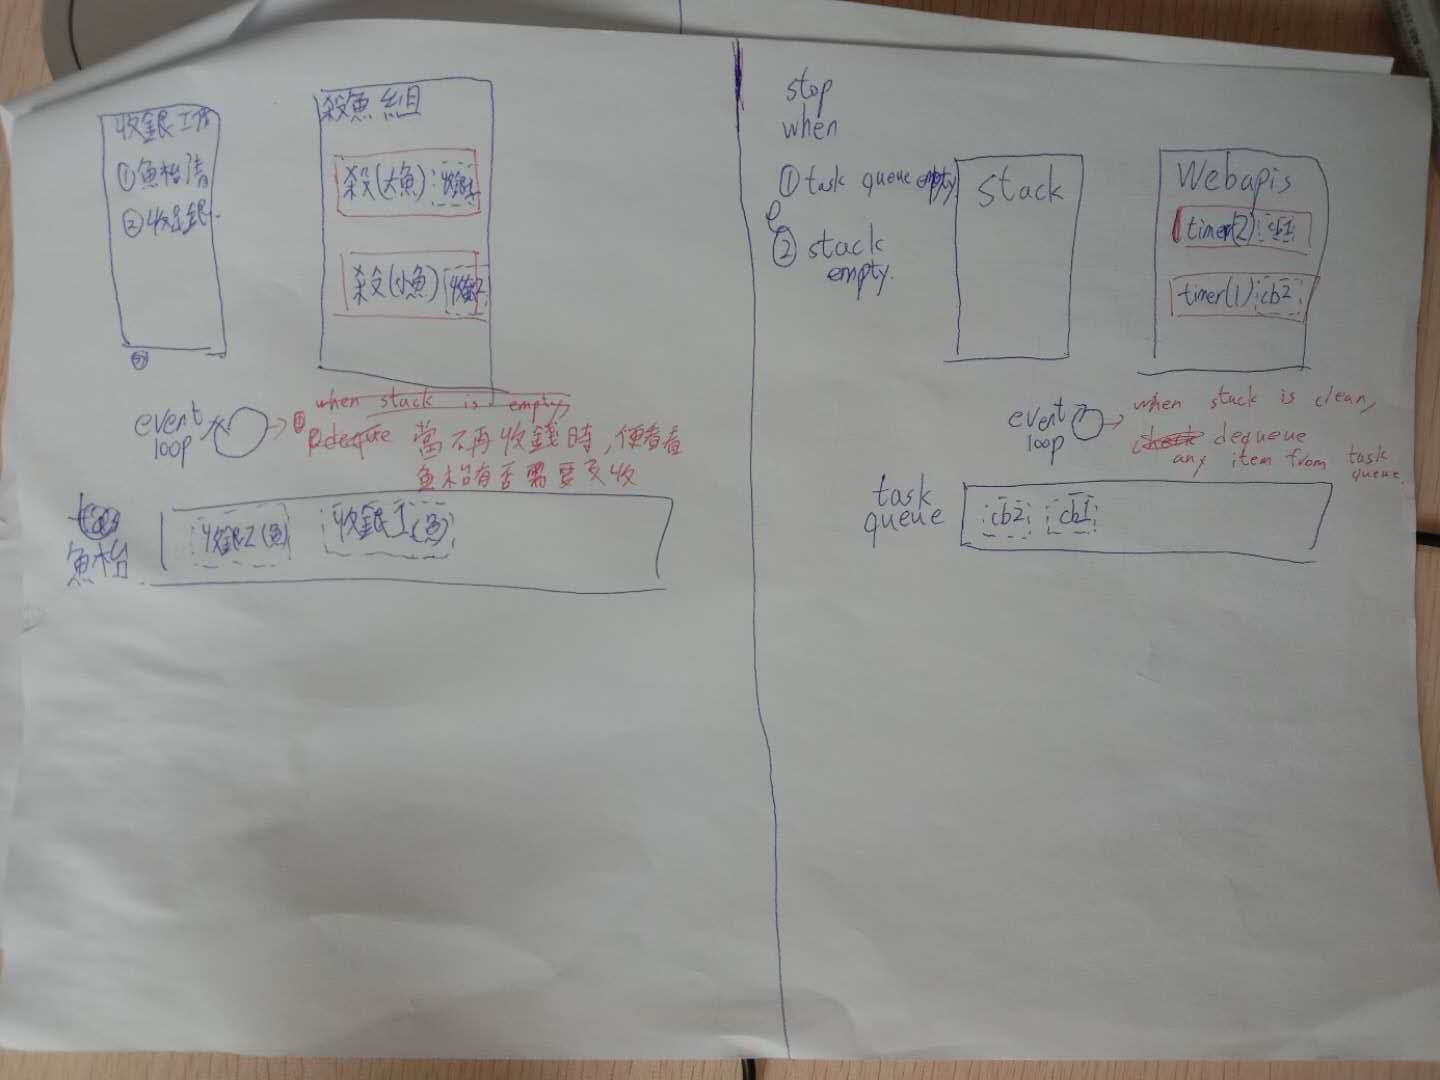 收銀工作
①魚枱清
②收銀
殺魚組
殺(大魚) 收銀1
殺(小魚) 收銀2
event
loop
when stack is empty,
當不再收錢時,便看看
魚枱有否需要交收
魚枱
收銀2(魚)
收銀1(魚)
stop
when
① task queue empty
② stack
empty.
stack
Webapis
timer(2) cb1
timer(1) cb2
event
loop
when stack is clean,
dequeue
any item from task
queue.
task
queue
cb2 cb1